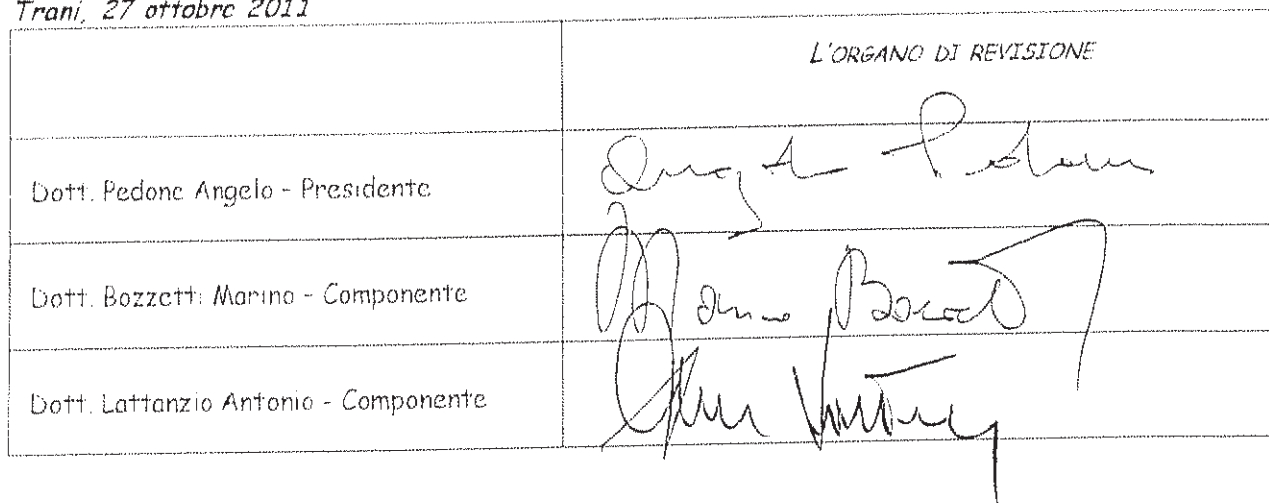 Trani, 27 ottobre 2011
L'ORGANO DI REVISIONE
Dott. Pedone Angelo - Presidente
Angelo Pedone
Dott. Bozzetti Marino - Componente
Marino Bozzetti
Dott. Lattanzio Antonio - Componente